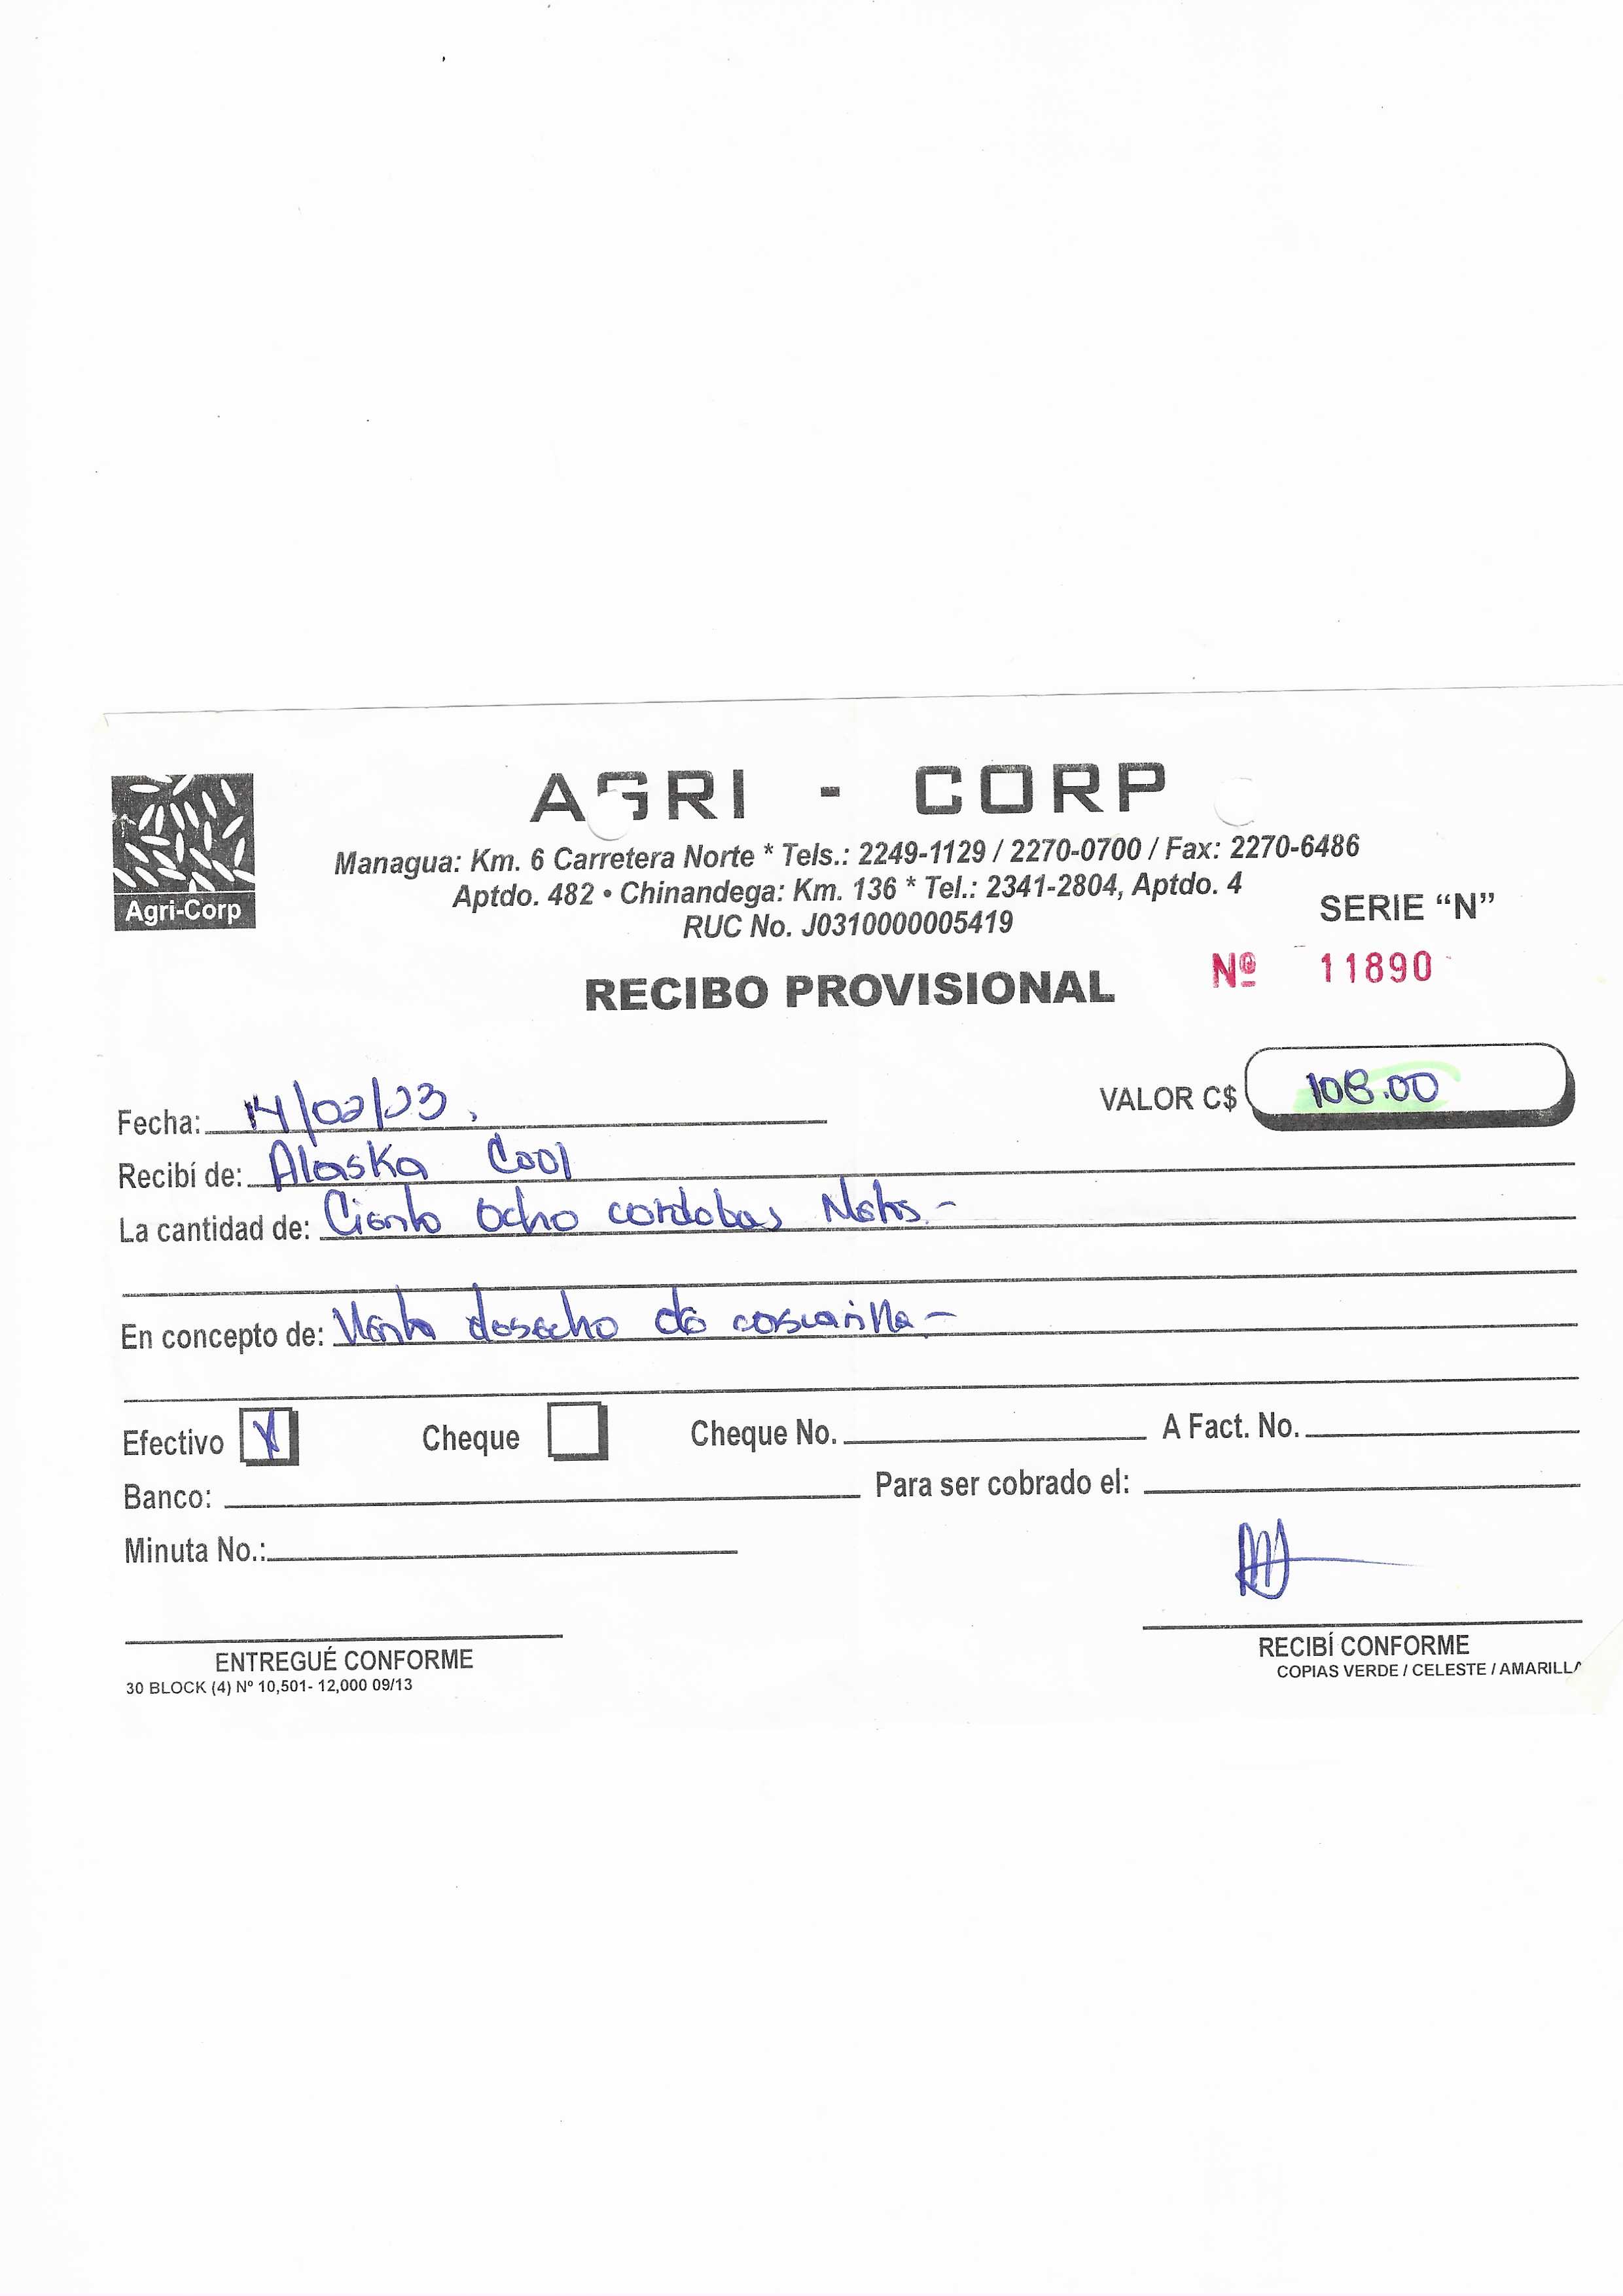 AGRI - CORP
Agri-Corp
Managua: Km. 6 Carretera Norte * Tels.: 2249-1129 / 2270-0700 / Fax: 2270-6486
Aptdo. 482 • Chinandega: Km. 136 * Tel.: 2341-2804, Aptdo. 4
RUC No. J0310000005419
SERIE “N”
RECIBO PROVISIONAL
Nº 11890
Fecha: 14/02/23.
VALOR C$ 108.00
Recibí de: Alaska Cool
La cantidad de: Ciento Ocho cordobas Netos.-
En concepto de: Venta desecho de cascarilla-
Efectivo X Cheque Cheque No. A Fact. No.
Banco: Para ser cobrado el:
Minuta No.:
ENTREGUÉ CONFORME RECIBÍ CONFORME
30 BLOCK (4) Nº 10,501- 12,000 09/13 COPIAS VERDE / CELESTE / AMARILLA